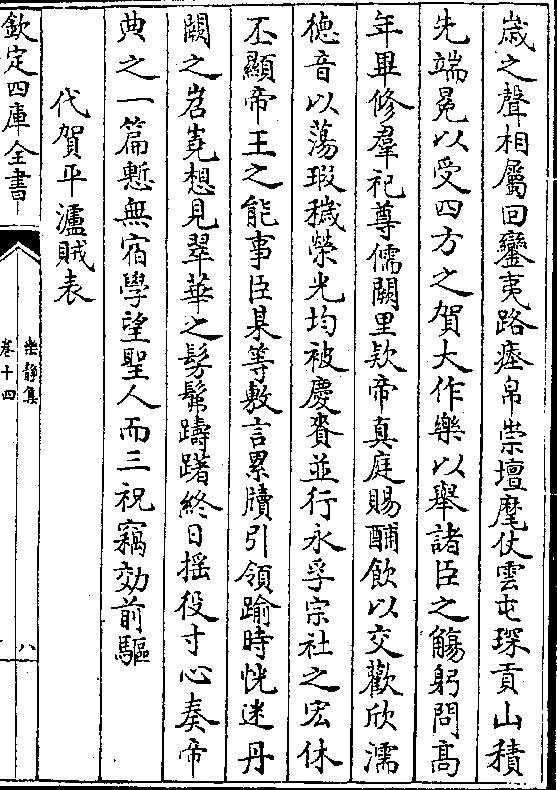 歳之聲相屬回鑾夷路瘞帛崇壇麾仗雲屯琛貢山積
先端冕以受四方之賀大作樂以舉諸臣之觴躬問髙
年畢修羣祀尊儒闕里欵帝真庭賜酺飲以交歡欣濡
徳音以蕩瑕穢榮光均被慶賚並行永孚宗社之宏休
丕顯帝王之能事臣某等敷言累牘引領踰時恍迷丹
闕之岧嶤想見翠華之髣髴躊躇終日揺役寸心奏帝
典之一篇慙無宿學望聖人而三祝竊効前驅
代賀平瀘賊表
欽定四庫全書
樂静集
卷十四
八